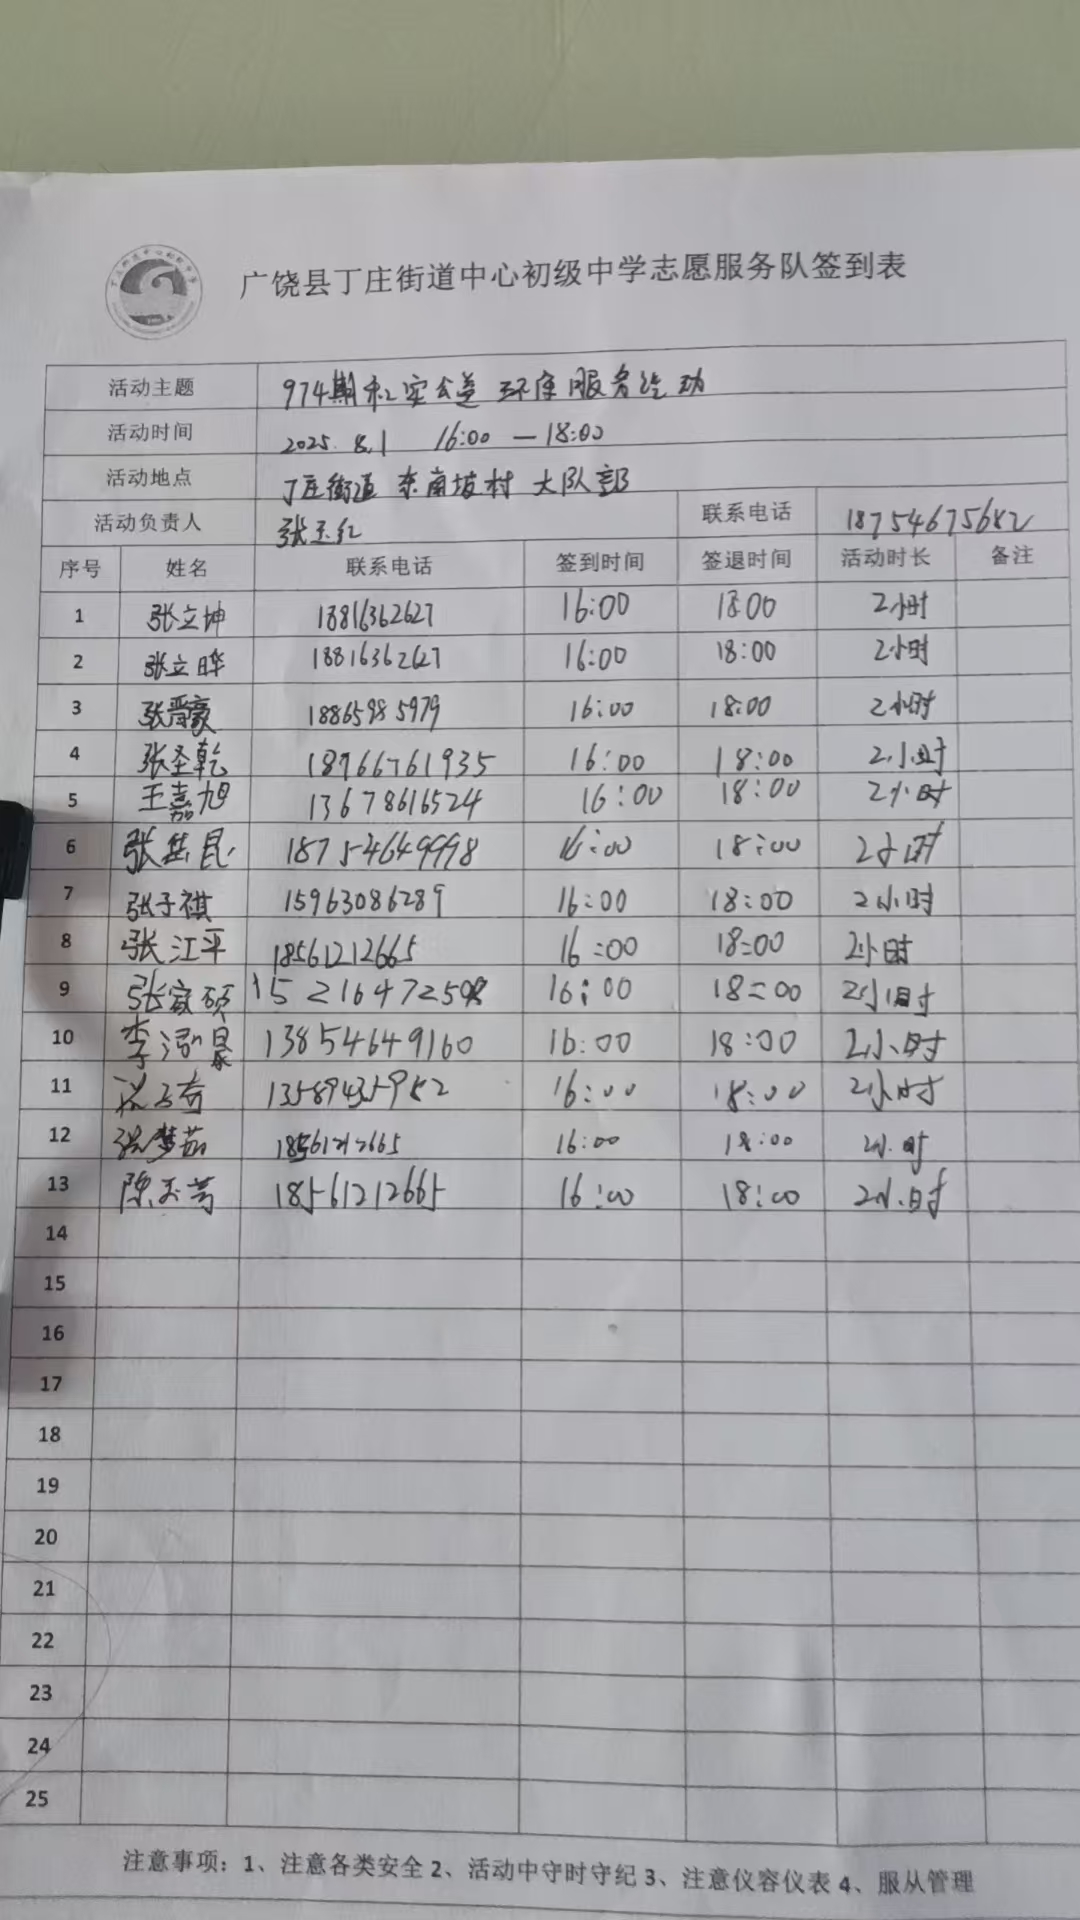 广饶县丁庄街道中心初级中学志愿服务队签到表
活动主题 974期 公益 环保服务活动
活动时间 2025.8.1 16:00 — 18:00
活动地点 丁庄街道 东南坡村 大队部
活动负责人 张玉红 联系电话 18754675682
序号 姓名 联系电话 签到时间 签退时间 活动时长 备注
1 张立坤 18816362627 16:00 18:00 2小时
2 张立晔 18816362627 16:00 18:00 2小时
3 张晋豪 18865985979 16:00 18:00 2小时
4 张圣乾 18766761935 16:00 18:00 2小时
5 王嘉旭 13678616524 16:00 18:00 2小时
6 张昆 18754649998 16:00 18:00 2小时
7 张子祺 15963086289 16:00 18:00 2小时
8 张江平 18561212665 16:00 18:00 2小时
9 张家硕 16:00 18:00 2小时
10 李泓 13854649160 16:00 18:00 2小时
11 13589435982 16:00 18:00 2小时
12 张梦茹 18561212665 16:00 18:00 2小时
13 陈玉芳 18561212665 16:00 18:00 2小时
14
15
16
17
18
19
20
21
22
23
24
25
注意事项：1、注意各类安全 2、活动中守时守纪 3、注意仪容仪表 4、服从管理